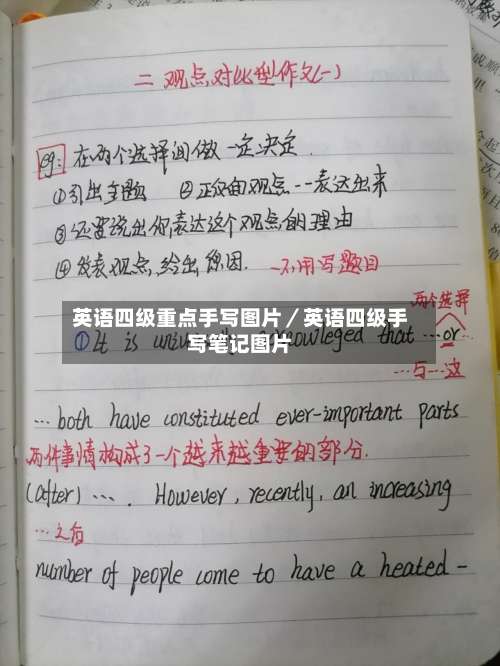 二 观点对比型作文(一)
eg: 在两个选择间做一定决定.
①引出主题 ②正反面观点--表达出来
③还要说出你表达这个观点的理由
④发表观点,给出原因. -不用写题目
两个选择
英语四级重点手写图片/英语四级手写笔记图片
①It is that ... or ...
...与...这
... both have constituted ever-important parts
两件事情构成了一个越来越重要的部分.
(after) .... However, recently, an increasing
...之后
number of people come to have a heated-